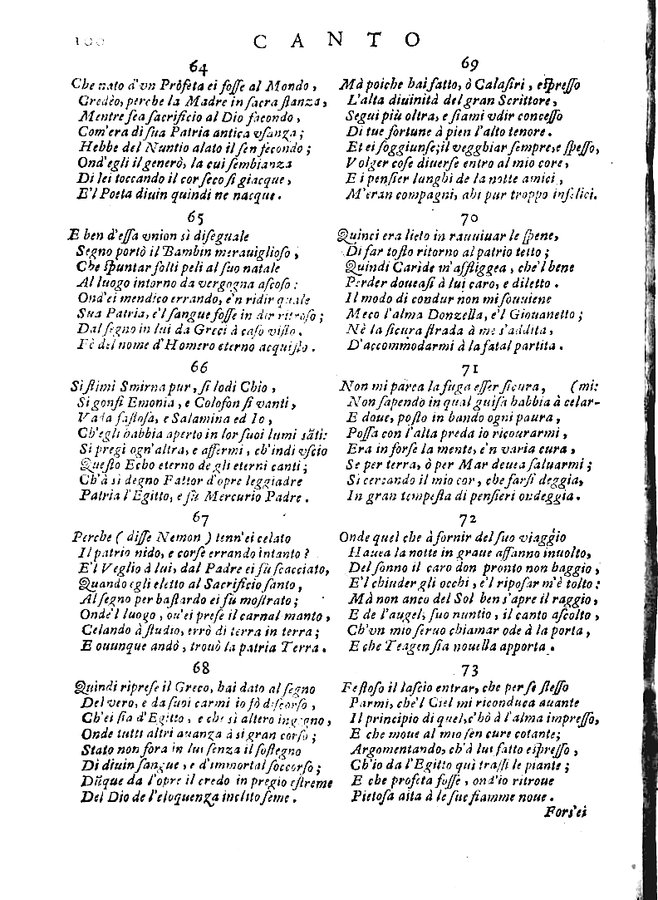 100 CANTO
64
Che nato d'vn Profeta ei fosse al Mondo,
Credèo, perche la Madre in sacra stanza,
Mentre fea sacrificio al Dio facondo,
Com'era di sua Patria antica vsanza;
Hebbe del Nuntio alato il sen fecondo;
Ond'egli il generò, la cui sembianza
Di lei toccando il cor seco si giacque,
E'l Poeta diuin quindi ne nacque.
65
E ben d'essa vnion sì diseguale
Segno portò il Bambin merauiglioso,
Che spuntar folti peli al suo natale
Al luogo intorno da vergogna ascoso:
Ond'ei mendico errando, e'n ridir quale
Sua Patria, e'l sangue fosse in dir ritroso;
Dal segno in lui da Greci à caso visto.
Fè del nome d'Homero eterno acquisto.
66
Si stimi Smirna pur, si lodi Chio,
Si gonfi Emonia, e Colofon si vanti,
Vada fastosa, e Salamina ed Io,
Ch'egli habbia aperto in lor suoi lumi säti:
Si pregi ogn'altra, e affermi, ch'indi vscio
Questo Echo eterno de gli eterni canti;
Ch'à sì degno Fattor d'opre leggiadre
Patria l'Egitto, e fù Mercurio Padre.
67
Perche (disse Nemon) tenn'ei celato
Il patrio nido, e corse errando intanto?
E'l Veglio à lui, dal Padre ei fù scacciato,
Quando egli eletto al Sacrificio santo,
Al segno per bastardo ei fù mostrato;
Onde'l luogo, ou'ei prese il carnal manto,
Celando à studio, errò di terra in terra;
E ouunque andò, trouò la patria Terra.
68
Quindi riprese il Greco, hai dato al segno
Del vero, e da suoi carmi io fò discorso,
Ch'ei sia d'Egitto, e che sì altero ingegno,
Onde tutti altri auanza à sì gran corso;
Stato non fora in lui senza il sostegno
Di diuin sangue, e d'immortal soccorso;
Dũque da l'opre il credo in pregio estreme
Del Dio de l'eloquenza inclito seme.
69
Mà poiche hai fatto, ò Calasiri, espresso
L'alta diuinità del gran Scrittore,
Segui più oltra, e siami vdir concesso
Di tue fortune à pien l'alto tenore.
Et ei soggiunse; il vegghiar sempre, e spesso,
Volger cose diuerse entro al mio core,
E i pensier lunghi de la notte amici,
M'eran compagni, ahi pur troppo infelici.
70
Quinci era lieto in rauuiuar le spene,
Di far tosto ritorno al patrio tetto;
Quindi Caride m'affliggea, che'l bene
Perder doueasi à lui caro, e diletto.
Il modo di condur non mi souuiene
Meco l'alma Donzella, e'l Giouanetto;
Nè la sicura strada à me s'addita,
D'accommodarmi à la fatal partita.
71
Non mi parea la fuga esser sicura, (mi:
Non sapendo in qual guisa habbia à celar-
E doue, posto in bando ogni paura,
Possa con l'alta preda io ricourarmi,
Era in forse la mente, e'n varia cura,
Se per terra, ò per Mar deuea saluarmi;
Sì cercando il mio cor, che farsi deggia,
In gran tempesta di pensieri ondeggia.
72
Onde quel che à fornir del suo viaggio
Hauea la notte in graue affanno inuolto,
Del sonno il caro don pronto non haggio,
E'l chiuder gli occhi, e'l riposar m'è tolto:
Mà non anco del Sol ben s'apre il raggio,
E de l'augel, suo nuntio, il canto ascolto,
Ch'vn mio seruo chiamar ode à la porta,
E che Teagen sia nouella apporta.
73
Festoso il lascio entrar, che per se stesso
Parmi, che'l Ciel mi riconduca auante
Il principio di quel, c'hò à l'alma impresso,
E che moue al mio sen cure cotante;
Argomentando, ch'à lui fatto espresso,
Ch'io da l'Egitto quì trassi le piante;
E che profeta fosse, ond'io ritroue
Pietosa aita à le sue fiamme noue.
Fors'ei